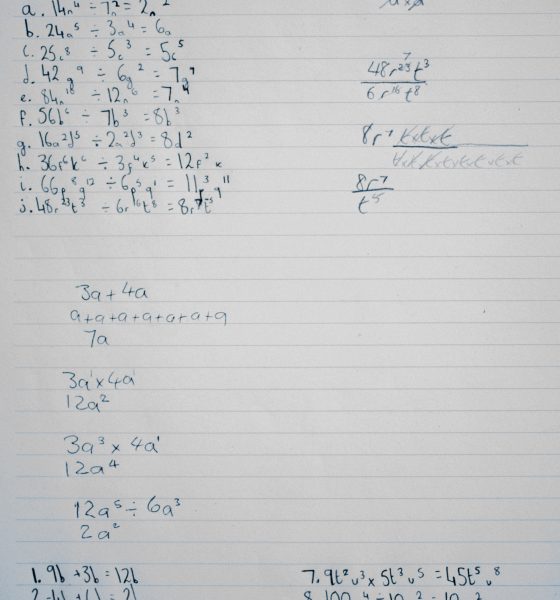 a. 14n⁴ ÷ 7n² = 2n²
b. 24a⁵ ÷ 3a⁴ = 6a
c. 25c⁸ ÷ 5c³ = 5c⁵
d. 42g⁹ ÷ 6g² = 7g⁷
e. 84n¹⁰ ÷ 12n⁶ = 7n⁴
f. 56b⁶ ÷ 7b³ = 8b³
g. 16a²d⁵ ÷ 2a²d³ = 8d²
h. 36f⁶k⁶ ÷ 3f⁴k⁵ = 12f²k
i. 66p⁸q¹² ÷ 6p⁵q¹ = 11p³q¹¹
j. 48r²³t³ ÷ 6r¹⁶t⁸ = 8r⁷t⁵
7
48r²³t³
6r¹⁶t⁸
8r⁷ t×t×t
t×t×t×t×t×t×t×t
8r⁷
t⁵
3a + 4a
a+a+a+a+a+a+a
7a
3a¹ × 4a¹
12a²
3a³ × 4a¹
12a⁴
12a⁵ ÷ 6a³
2a²
1. 9b + 3b = 12b
7. 9t²v³ × 5t³v⁵ = 45t⁵v⁸